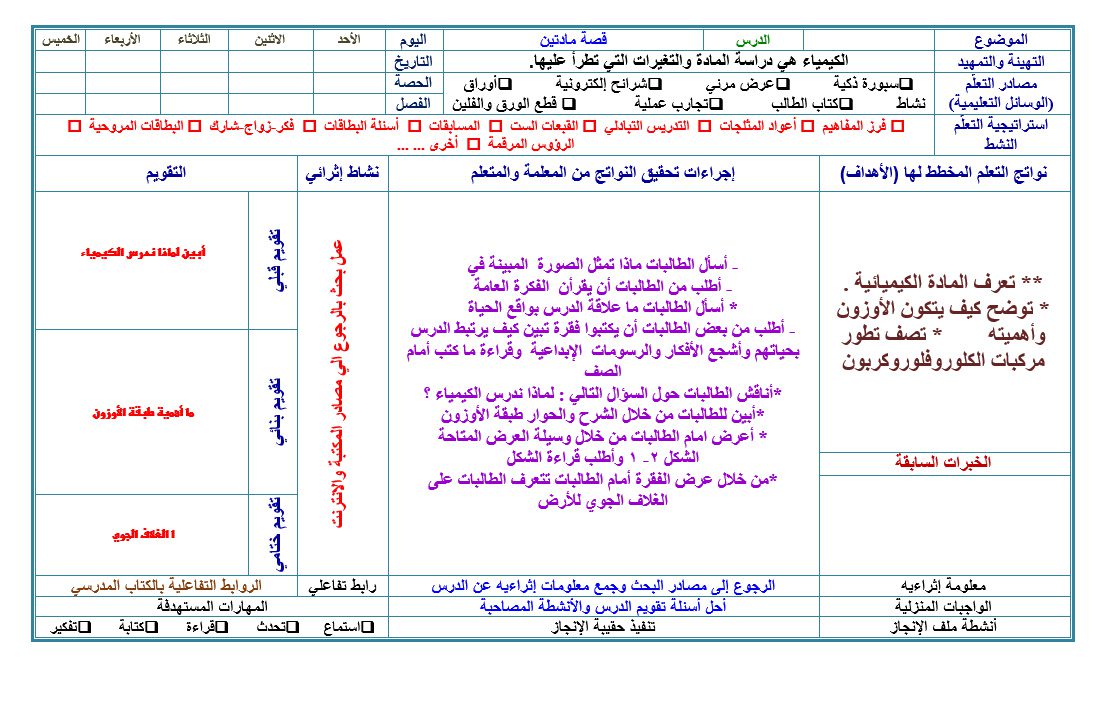 الموضوع الدرس قصة مادتين اليوم الأحد الاثنين الثلاثاء الأربعاء الخميس
التهيئة والتمهيد الكيمياء هي دراسة المادة والتغيرات التي تطرأ عليها. التاريخ
مصادر التعلّم (الوسائل التعليمية) ❑سبورة ذكية ❑عرض مرئي ❑شرائح إلكترونية ❑أوراق الحصة
نشاط ❑كتاب الطالب ❑تجارب عملية ❑ قطع الورق والفلين الفصل
استراتيجية التعلّم النشط ❑ فرز المفاهيم ❑ أعواد المثلجات ❑ التدريس التبادلي ❑ القبعات الست ❑ المسابقات ❑ أسئلة البطاقات ❑ فكر-زواج-شارك ❑ البطاقات المروحية ❑
الرؤوس المرقمة ❑ أخرى ... ...
نواتج التعلم المخطط لها (الأهداف) إجراءات تحقيق النواتج من المعلمة والمتعلم نشاط إثرائي التقويم
** تعرف المادة الكيميائية .
* توضح كيف يتكون الأوزون
وأهميته * تصف تطور
مركبات الكلوروفلوروكربون
الخبرات السابقة
- أسأل الطالبات ماذا تمثل الصورة المبينة في
- أطلب من الطالبات أن يقرأن الفكرة العامة
* أسأل الطالبات ما علاقة الدرس بواقع الحياة
- أطلب من بعض الطالبات أن يكتبوا فقرة تبين كيف يرتبط الدرس
بحياتهم وأشجع الأفكار والرسومات الإبداعية وقراءة ما كتب أمام
الصف
*أناقش الطالبات حول السؤال التالي : لماذا ندرس الكيمياء ؟
*أبين للطالبات من خلال الشرح والحوار طبقة الأوزون
* أعرض امام الطالبات من خلال وسيلة العرض المتاحة
الشكل ٢- ١ وأطلب قراءة الشكل
*من خلال عرض الفقرة أمام الطالبات تتعرف الطالبات على
الغلاف الجوي للأرض
عمل بحث بالرجوع الي مصادر المكتبة والانترنت
تقويم قبلي
أبين لماذا ندرس الكيمياء
تقويم بنائي
ما أهمية طبقة الأوزون
تقويم ختامي
ا الغلاف الجوي
معلومة إثراءيه الرجوع إلى مصادر البحث وجمع معلومات إثراءيه عن الدرس رابط تفاعلي الروابط التفاعلية بالكتاب المدرسي
الواجبات المنزلية أحل أسئلة تقويم الدرس والأنشطة المصاحبة المهارات المستهدفة
أنشطة ملف الإنجاز تنفيذ حقيبة الإنجاز ❑استماع ❑تحدث ❑قراءة ❑كتابة ❑تفكير